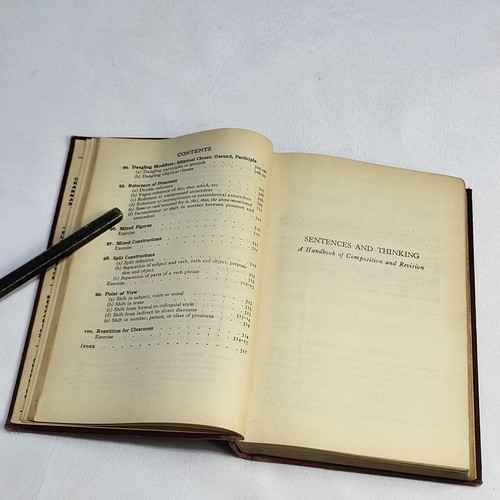 CONTENTS
94. Dangling Modifiers. Elliptical Clause, Gerund, Participle
(a) Dangling participles or gerunds
(b) Dangling elliptical clauses
95. Reference of Pronouns
(a) Double reference
(b) Vague reference of this, that, which, etc.
(c) Reference to unexpressed antecedent
(d) Reference to inconspicuous or parenthetical antecedent
(e) Same or said misused for it, this, that, the above-mentioned
(f) Inconsistency or shift in number between pronoun and
antecedent
96. Mixed Figures
Exercise
97. Mixed Constructions
Exercise
98. Split Constructions
(a) Split infinitive
(b) Separation of subject and verb, verb and object, preposi-
tion and object
(c) Separation of parts of a verb phrase
Exercise
99. Point of View
(a) Shift in subject, voice or mood
(b) Shift in tense
(c) Shift from formal to colloquial style
(d) Shift from indirect to direct discourse
(e) Shift in number, person, or class of pronouns
100. Repetition for Clearness
Exercise
INDEX 317
SENTENCES AND THINKING
A Handbook of Composition and Revision